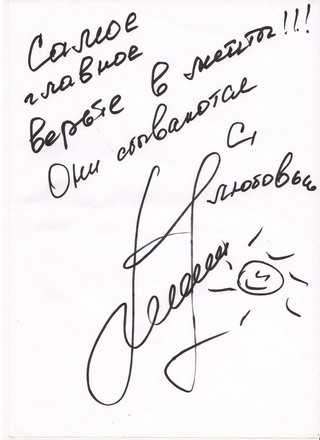 Самое
главное
верьте в мечты!!!
Они сбываются
С
любовью